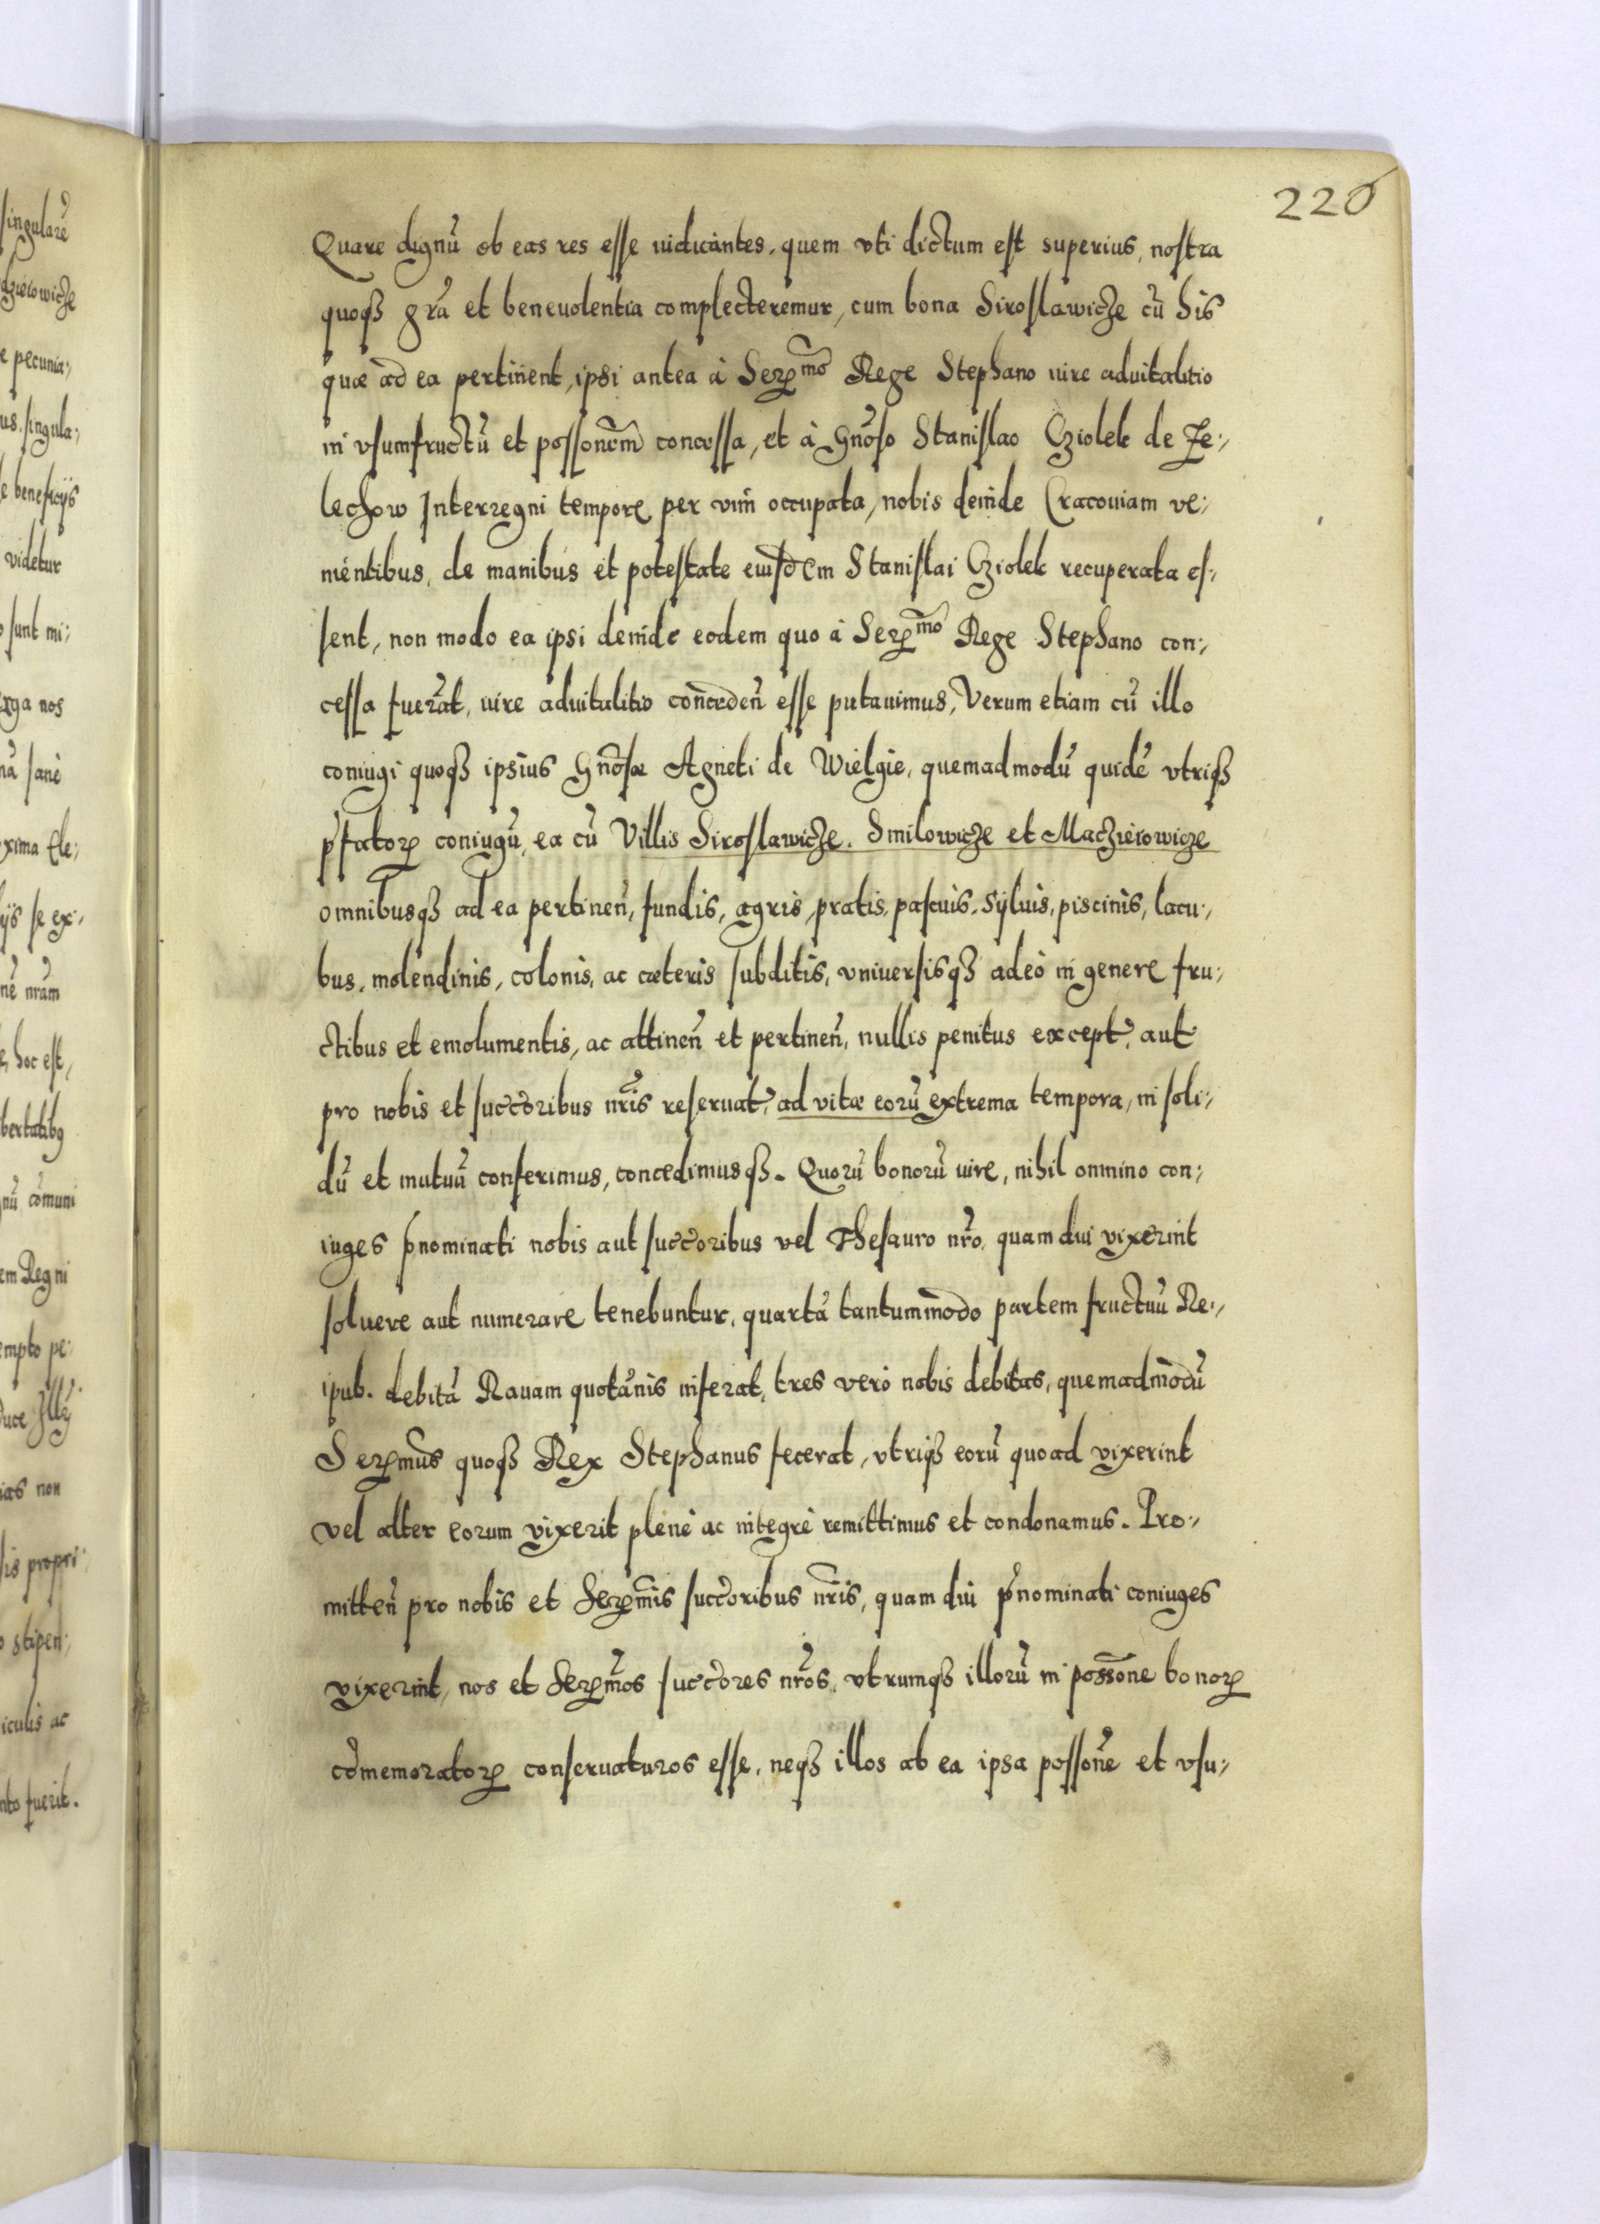 220
Quare dignũ ob eas res esse iudicantes, quem vti dictum est superius, nostra
quoqȝ gr̃a et beneuolentia complecteremur, cum bona Siroslawicze cũ his
quæ ad ea pertinent, ipsi antea à Serꝫᵐᵒ Rege Stephano iure aduitalitio
in vsumfructũ et possonẽm concessa, et à Gnõso Stanislao Cziolek de Ze:,
lechow Interregni tempore per vim occupata, nobis deinde Cracouiam ve:,
nientibus, de manibus et potestate eiusdem Stanislai Cziolek recuperata es:,
sent, non modo ea ipsi deinde eodem quo à Serꝫᵐᵒ Rege Stephano con:,
cessa fuerãt, iure aduitalitio concedeñ esse putauimus, Verum etiam cũ illo
coniugi quoqȝ ipsius Gnõsæ Agneti de Wielgie, quemadmodũ quidẽ vtriqȝ
p̃fatorꝫ coniugũ, ea cũ Villis Siroslawicze, Smilowicze et Maczieiowicze
omnibusqȝ ad ea pertineñ, fundis, agris, pratis, pascuis, syluis, piscinis, lacu:,
bus, molendinis, colonis, ac cæteris subditis, vniuersisqȝ adeò in genere fru:,
ctibus et emolumentis, ac attineñ et pertineñ, nullis penitus except̃, aut
pro nobis et succõribus nr̃is reseruat̃, ad vitæ eorũ extrema tempora, in soli:,
dũ et mutuũ conferimus, concedimusqȝ. Quorũ bonorũ iure, nihil omnino con:,
iuges p̃nominati nobis aut succõribus vel Thesauro nr̃o, quam diu vixerint
soluere aut numerare tenebuntur, quartã tantummodo partem fructuũ Re:,
ipub. debitã Rauam quotãnis inferãt, tres verò nobis debitas, quemadmodũ
Serꝫmũs quoqȝ Rex Stephanus fecerat, vtriqȝ eorũ quoad vixerint
vel alter eorum vixerit plenè ac integrè remittimus et condonamus. Pro:,
mitteñ pro nobis et Serꝫmĩs succõribus nr̃is, quam diu p̃nominati coniuges
vixerint, nos et Serꝫmõs succõres nr̃os, vtrumqȝ illorũ in possõne bonorꝫ
cõmemoratorꝫ conseruaturos esse, neqȝ illos ab ea ipsa possoñe et vsu:,